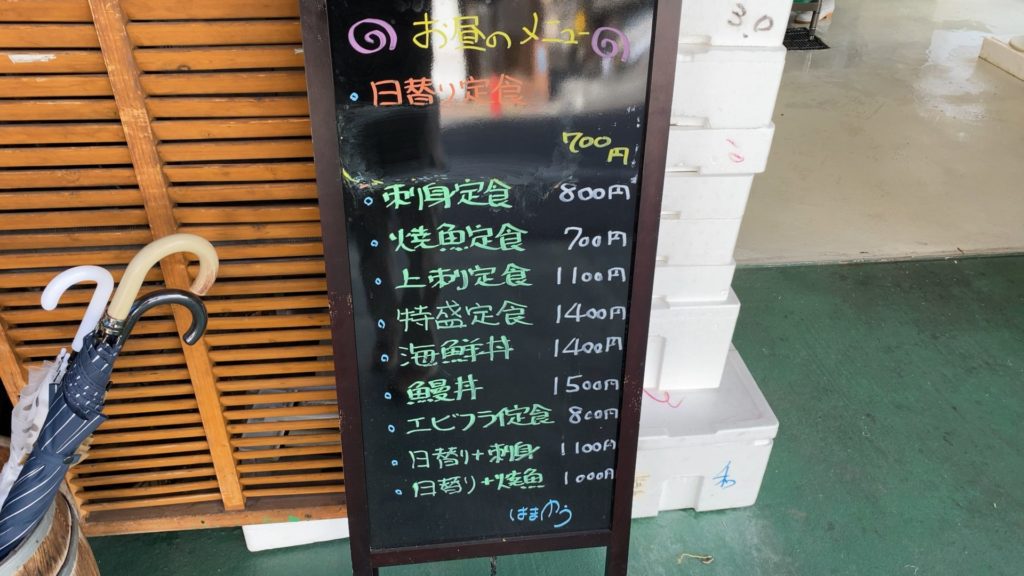 お昼のメニュー
日替り定食
700円
刺身定食 800円
焼魚定食 700円
上刺定食 1100円
特盛定食 1400円
海鮮丼 1400円
鰻丼 1500円
エビフライ定食 800円
日替り+刺身 1100円
日替り+焼魚 1000円
はまゆう
3.0